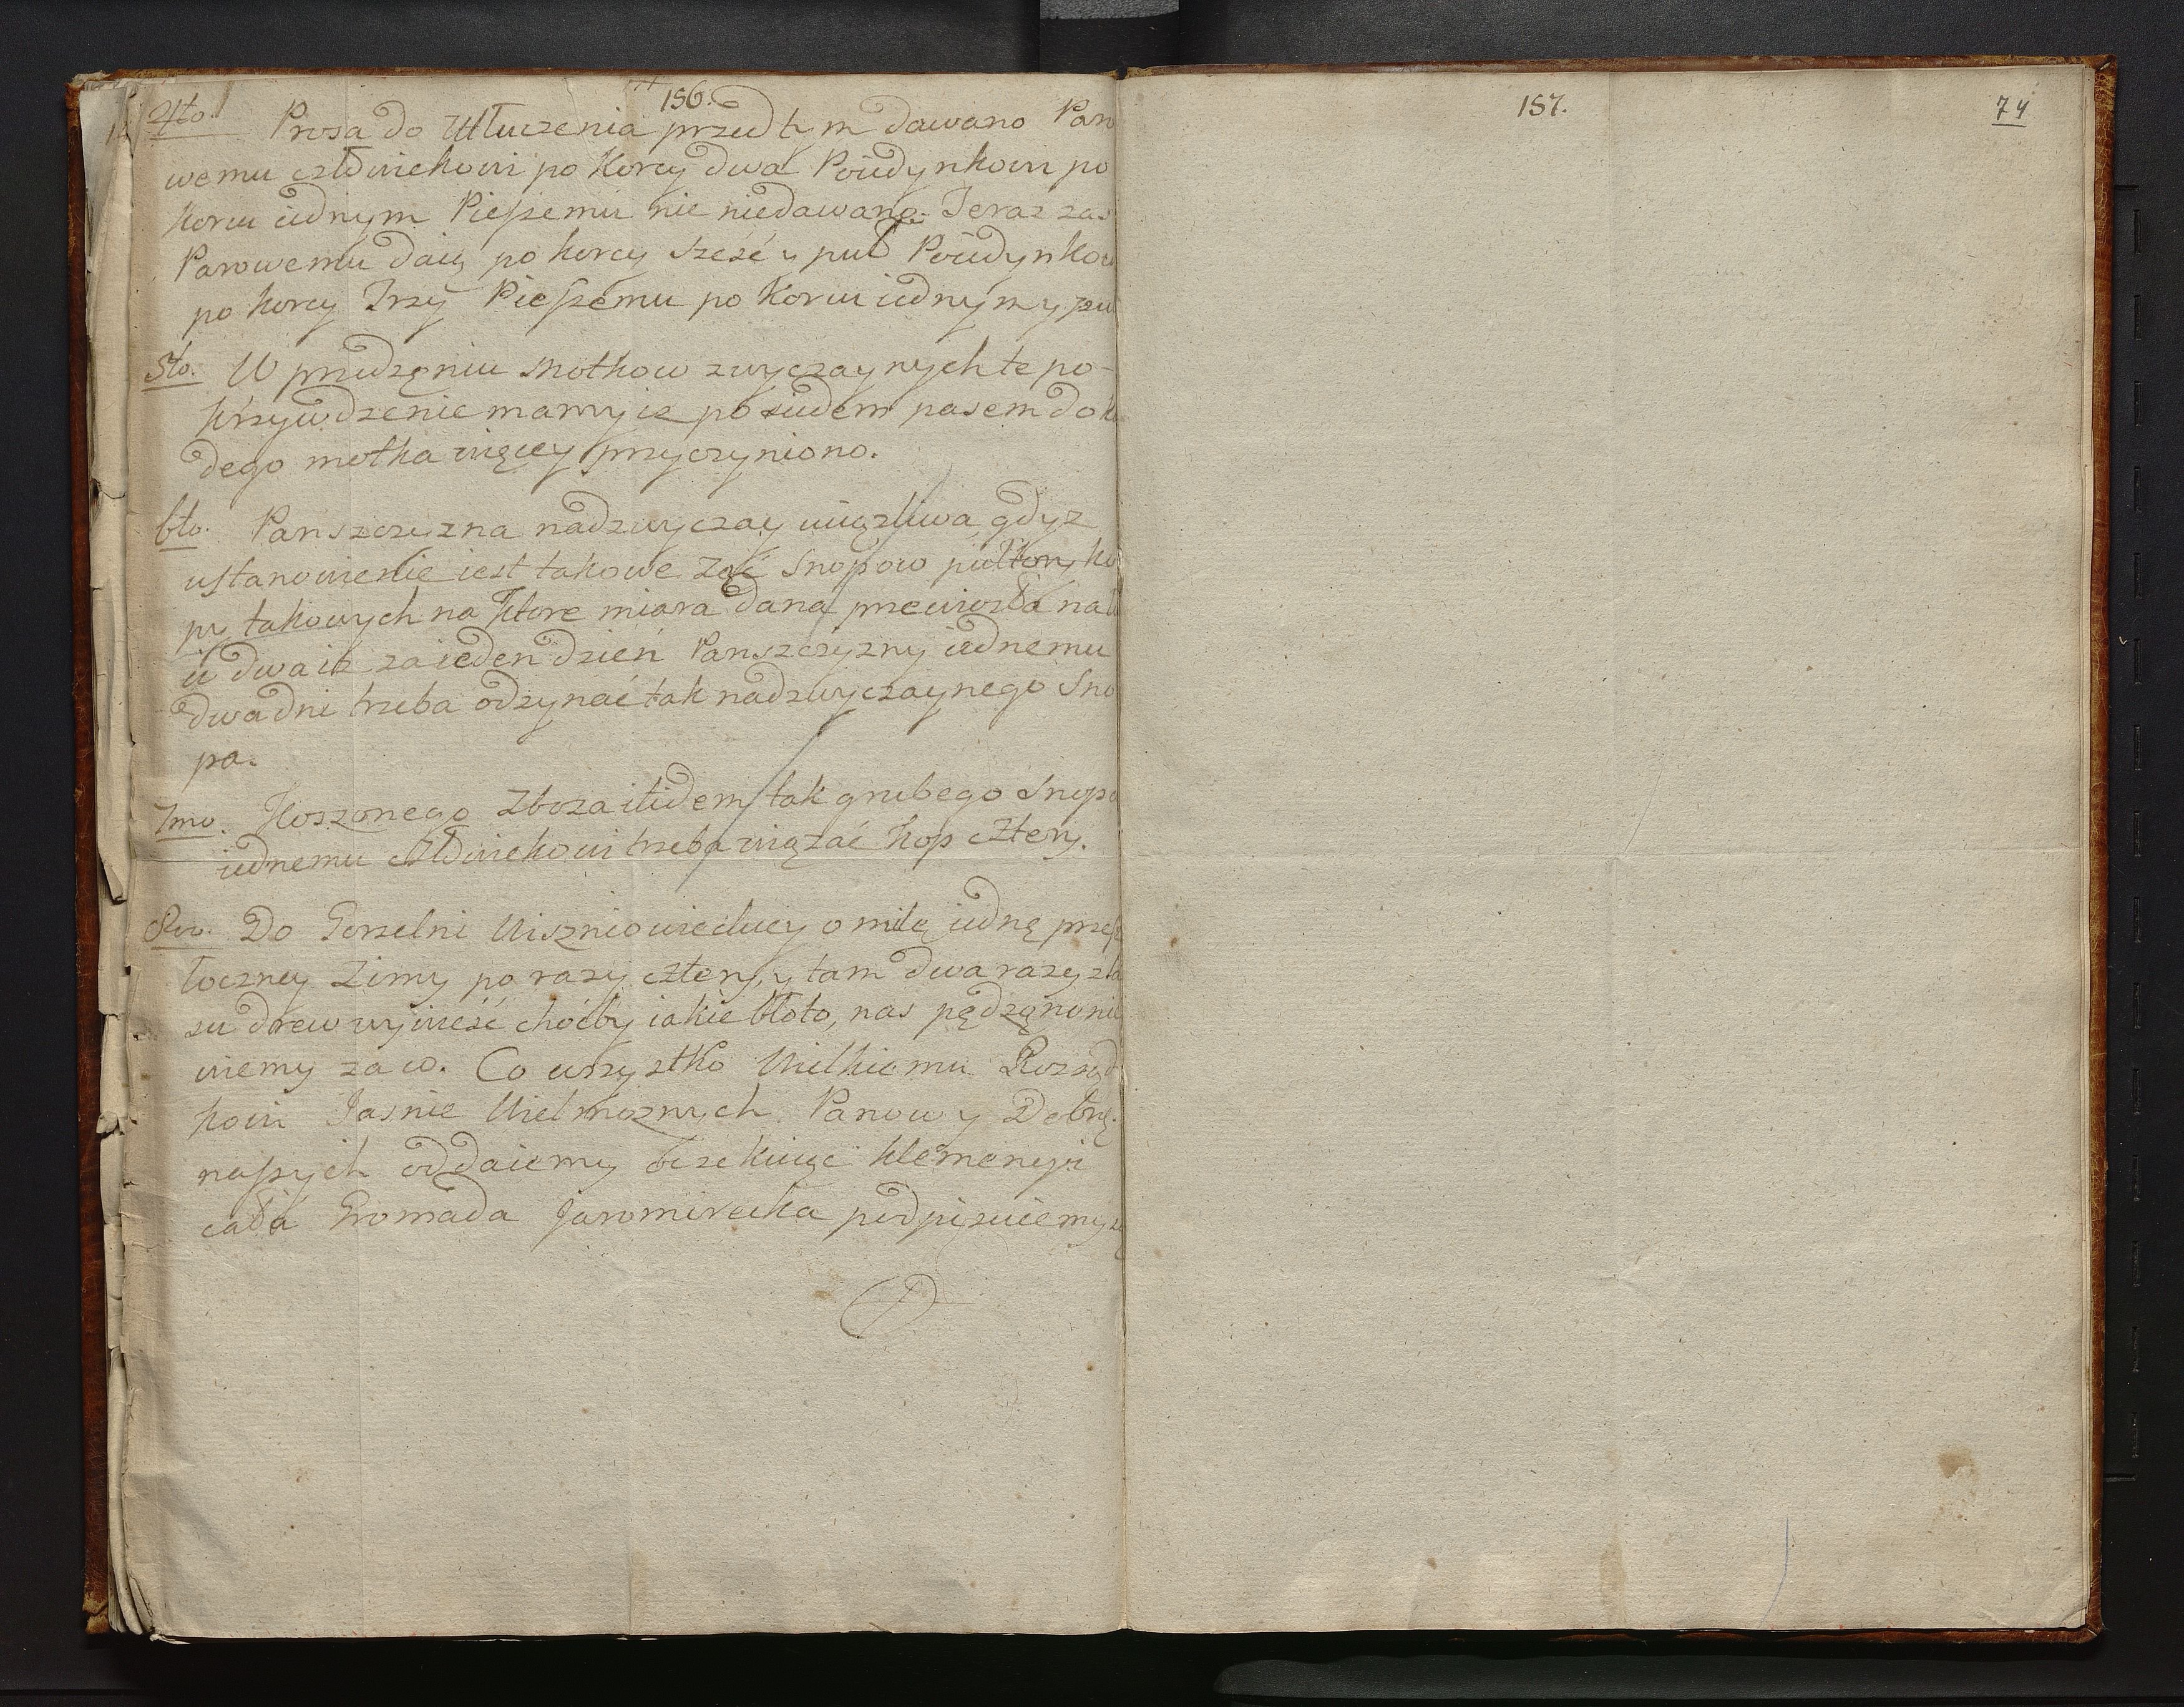 156.
4to. Prosa do Utłuczenia przed tym dawano Paro
wemu człowiekowi po Korcy dwa Poiedynkowi po
korcu iednym Pieszemu nic niedawano. Teraz zas
Parowemu daią po korcy sześć y puł Poiedynkow
po korcy Trzy Pieszemu po Korcu iednym y pu
5to. W przędzęniu Motkow zwyczaynych te po-
krzywdzenie mamy iz po iednem pasem do ka
dego motka więcey przyczyniono.
6to. Panszczyzna nadzwyczay uciążliwa gdyz
ustanowienie iest takowe Ząć Snopow pułtory ko
py takowych na Ktore miara dana przewiosła na ł
u dwa iz za ieden dzień Panszczyzny iednemu
dwa dni trzeba odzynać tak nadzwyczaynego Sno
pa.
7mo. Koszonego Zboza itidem tak grubego Snopa
iednemu człowiekowi trzeba wiązać Kop cztery.
8vo. Do Gorzelni Wiszniowieckiey o milę iednę przesz
łoczney Zimy po razy cztery, y tam dwa razy z la
su drew wywieść choćby iakie błoto, nas pędzęno nie
wiemy za co. Co wszystko Wielkiemu Rozsąd
kowi Jasnie Wielmoznych Panow y Dobrę.
naszych oddaiemy oczekuiąc klemencyi
cała Gromada Jaromirecka podpisuiemy się
157.
74